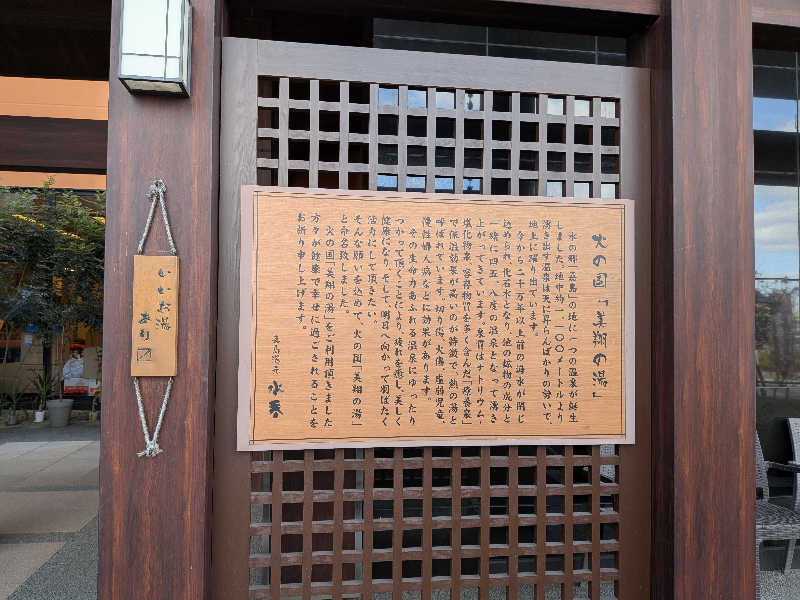 火の国「美翔の湯」
水の郷「嘉島」の地に一つの温泉が誕生
しました。地中約一、一〇〇メートルより
湧き出す温泉は天に昇らんばかりの勢いで、
地上に踊り出ています。
今から二十万年以上前の海水が閉じ
込められ、化石水となり、他の鉱物の成分と
一緒に四五、八度の温泉となって湧き
上がってきています。泉質はナトリウム・
塩化物泉、溶存物質を多く含んだ「療養泉」
で保温効果が高いのが特徴で、「熱の湯」と
呼ばれています。切り傷、火傷、虚弱児童、
慢性婦人病などに効果があります。
その生命力あふれる温泉にゆったり
つかって頂くことにより、疲れを癒し、美しく
健康になり、そして、明日へ向かって羽ばたく
活力にして頂きたい。
そんな願いを込めて、火の国「美翔の湯」
と命名致しました。
火の国「美翔の湯」をご利用頂きました
方々が健康で幸せに過ごされることを
お祈り申し上げます。
嘉島湯元 水春
いいお湯
あり〼